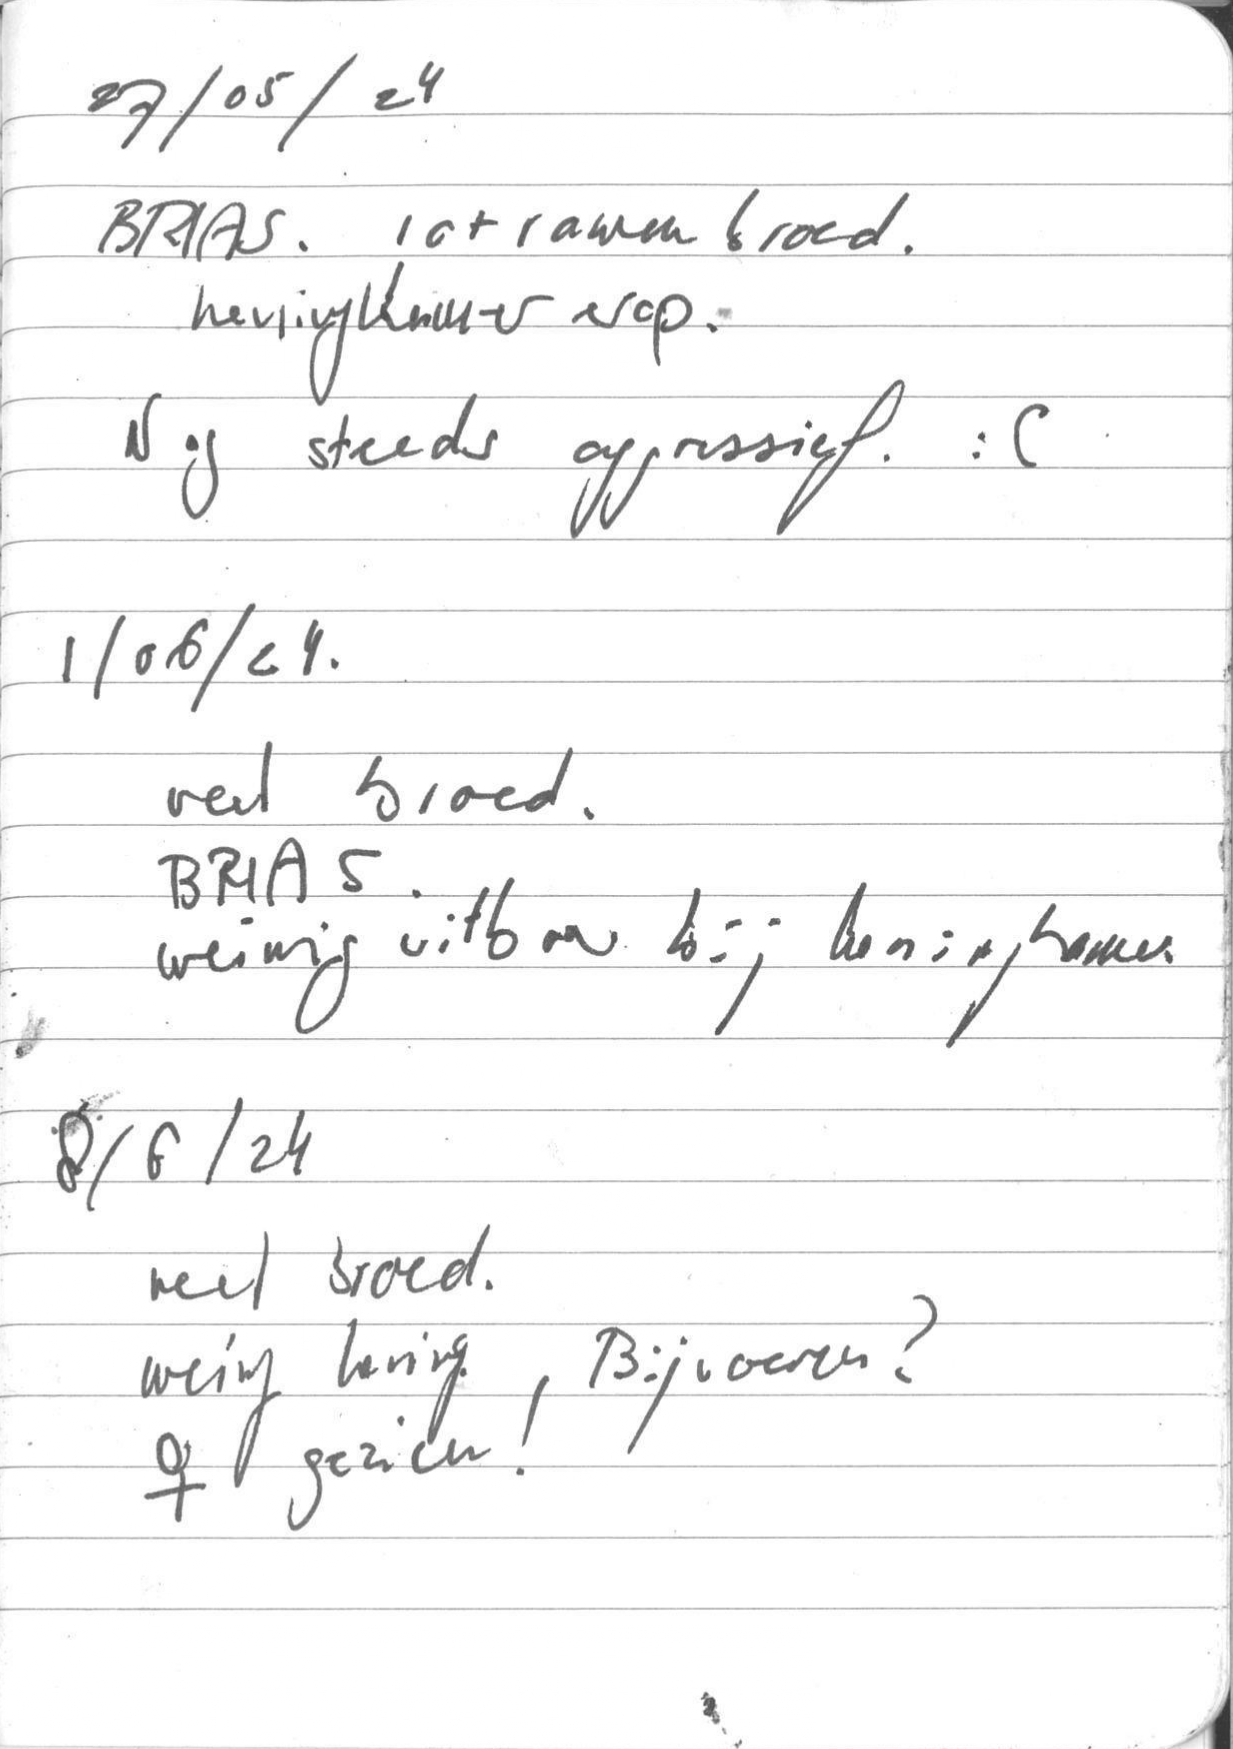 27/05/24
BRIAS. 10+ ramen broed.
honingkamer erop.
Nog steeds aggressief. :(
1/06/24.
veel broed.
BRIAS.
weinig uitbouw bij honingkamer
8/6/24
veel broed.
weinig honing, Bijvoeren?
♀ gezien!